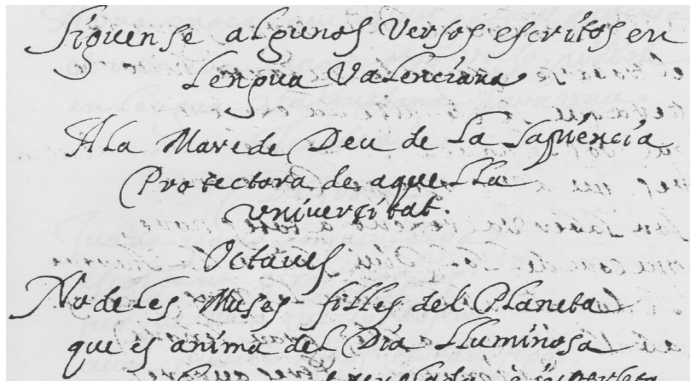 Siguense algunos Versos escritos en
Lengua Valenciana
A la Mare de Deu de la Sapiencia
Protectora de aquella
Universitat.
Octaves
No de les Muses filles del Planeta
que es anima del Dia lluminosa